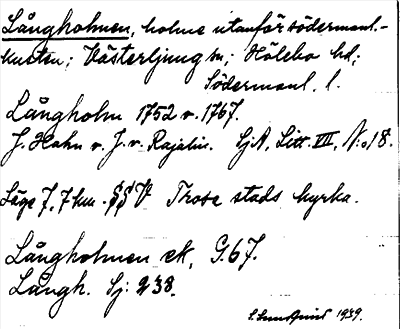 Långholmen, holme utanför södermanl.-
kusten; Västerljung sn; Hölebo hd;
Södermanl. l.
Långholm 1752 v. 1767.
J. Hahn v. J. v. Rajalin. SjA, Litt. VII, N:o 18.
Läge 7,7 km. SSV Trosa stads kyrka.
Långholmen ek. G. 67.
Långh. Sj: 238.
S. Sundquist 1939.